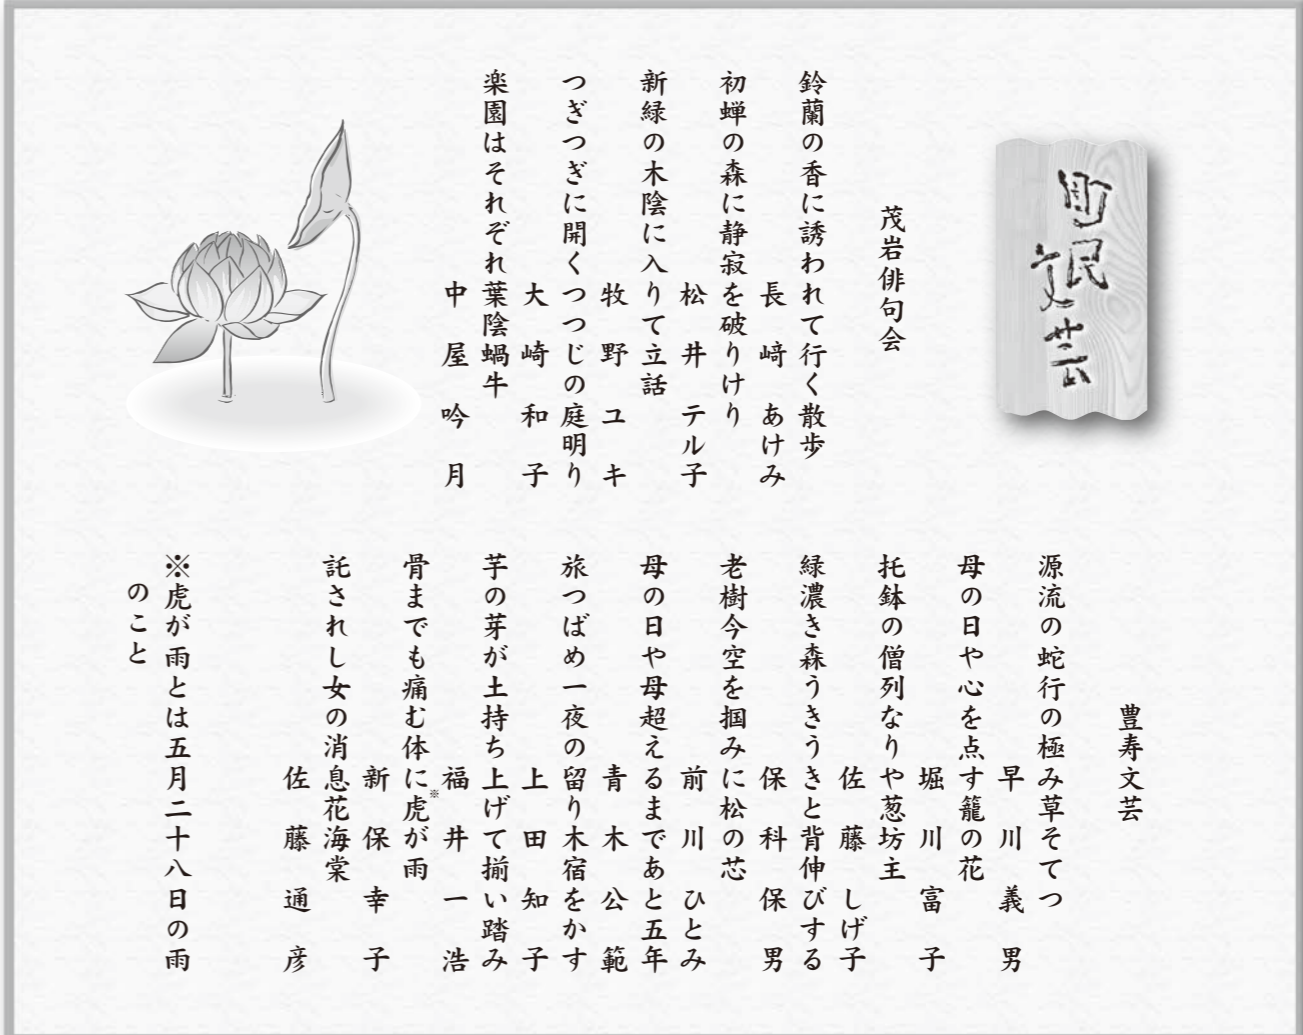 町民文芸
茂岩俳句会
鈴蘭の香に誘われて行く散歩
長﨑あけみ
初蝉の森に静寂を破りけり
松井テル子
新緑の木陰に入りて立話
牧野ユキ
つぎつぎに開くつつじの庭明り
大崎和子
楽園はそれぞれ葉陰蝸牛
中屋吟月
豊寿文芸
源流の蛇行の極み草そてつ
早川義男
母の日や心を点す籠の花
堀川富子
托鉢の僧列なりや葱坊主
佐藤しげ子
緑濃き森うきうきと背伸びする
保科保男
老樹今空を掴みに松の芯
前川ひとみ
母の日や母超えるまであと五年
青木公範
旅つばめ一夜の留り木宿をかす
上田知子
芋の芽が土持ち上げて揃い踏み
福井一浩
骨までも痛む体に※虎が雨
新保幸子
託されし女の消息花海棠
佐藤通彦
※虎が雨とは五月二十八日の雨
のこと